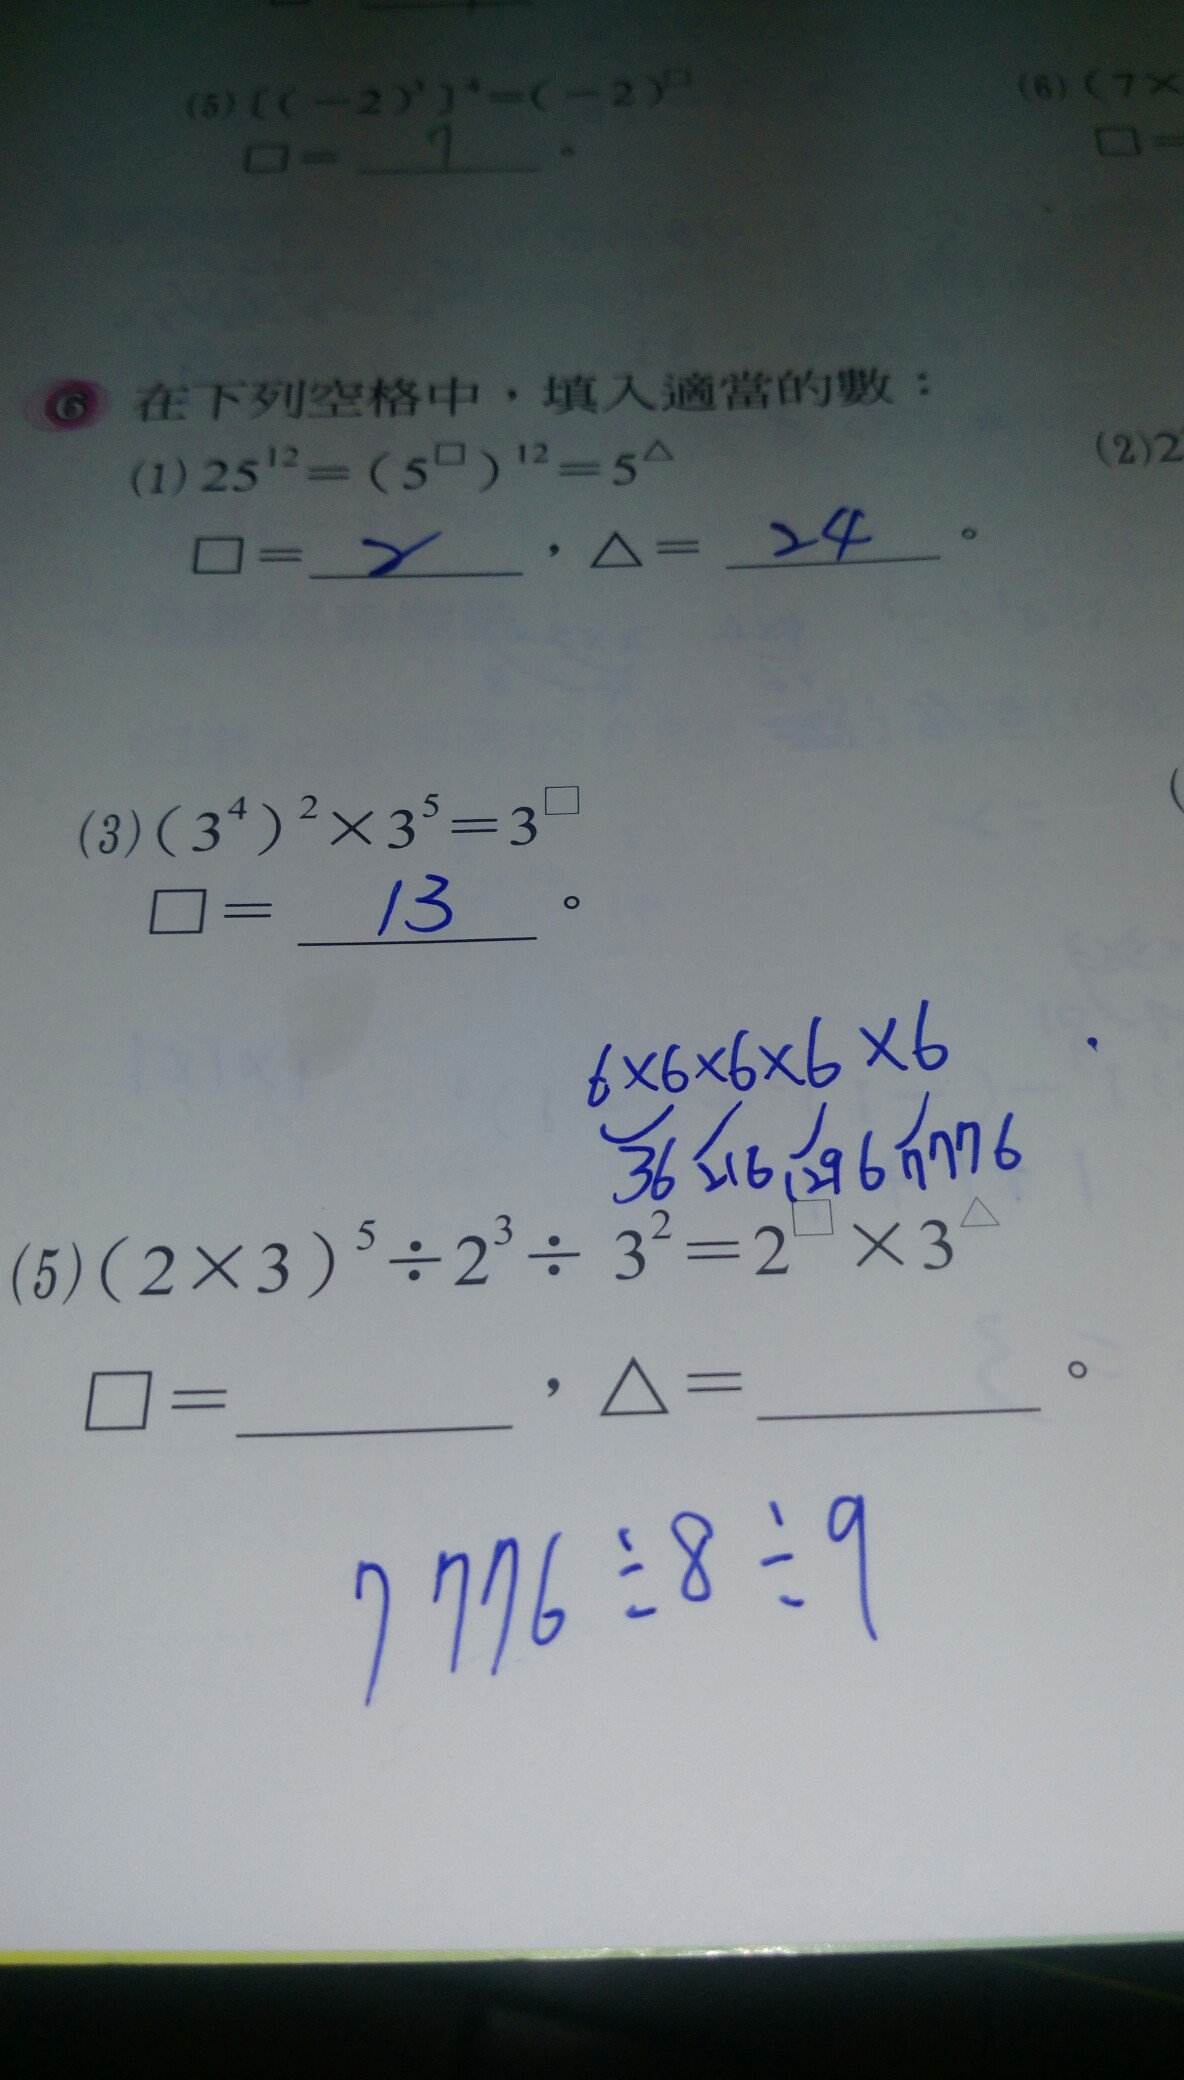 (5)〔(-2)³〕⁴=(-2)^□
□= 7 。
(6)(7×
□=
6 在下列空格中，填入適當的數：
(1)25¹²=(5^□)¹²=5^△
□= 2 ，△= 24 。
(2)2
(3)(3⁴)²×3⁵=3^□
□= 13 。
(
6×6×6×6×6
36 216 1296 7776
(5)(2×3)⁵÷2³÷3²=2^□×3^△
□= ，△= 。
7776÷8÷9